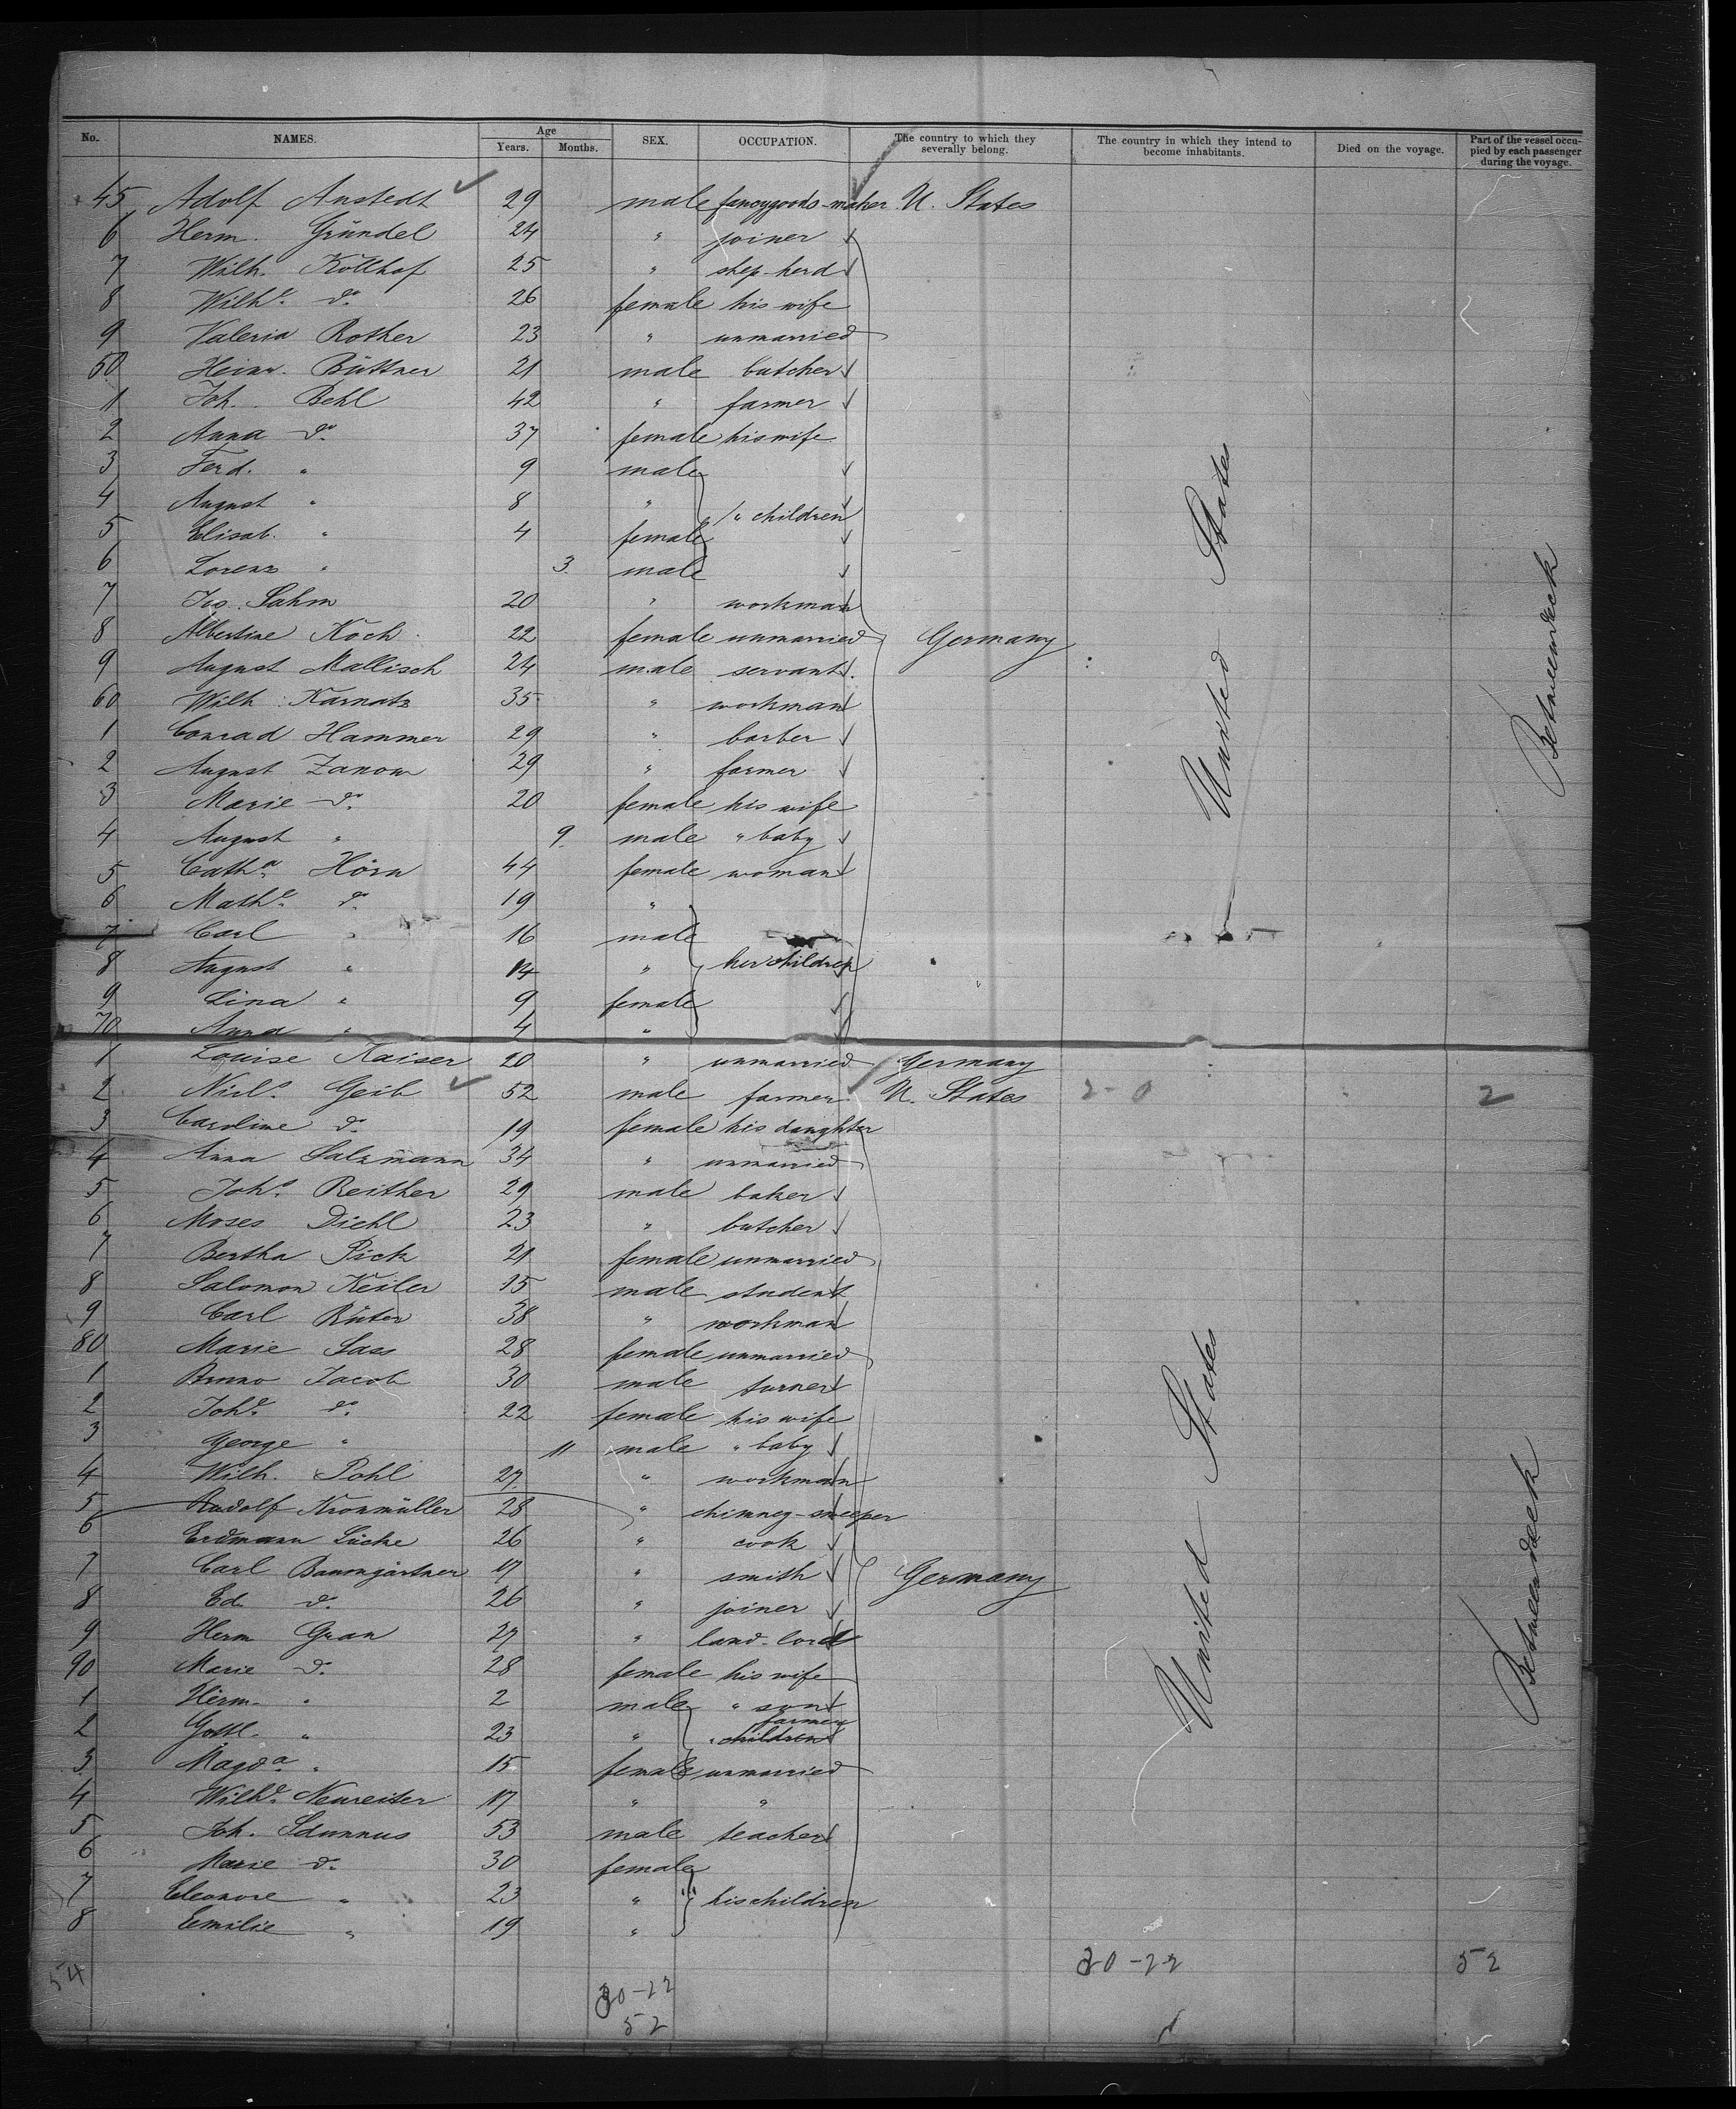 No. NAMES. Age Years. Months. SEX. OCCUPATION. The country to which they severally belong. The country in which they intend to become inhabitants. Died on the voyage. Part of the vessel occupied by each passenger during the voyage.
45 Adolf Anstedt 29 male fancygoods-maker U. States
6 Herm. Gründel 24 " joiner
7 Wilh. Kollhof 25 " shep-herd
8 Wilh.e do. 26 female his wife
9 Valeria Rother 23 " unmarried
50 Heinr. Büttner 21 male butcher
1 Joh. Behl 42 " farmer
2 Anna do. 37 female his wife
3 Ferd. " 9 male
4 August " 8 " " children
5 Elisab. " 4 female
6 Lorenz " 3. male
7 Jos. Sahm 20 " workman
8 Albertine Koch 22 female unmarried Germany
9 August Mallisch 24 male servant
60 Wilh. Karnatz 35 " workman
1 Conrad Hammer 29 " barber
2 August Zanow 29 " farmer
3 Marie do. 20 female his wife
4 August " 9. male " baby
5 Cath.a Hörn 44 female woman
6 Math.e do. 19 "
7 Carl " 16 male
8 August " 14 " her children
9 Lina " 9 female
70 Anna " 4 "
1 Louise Kaiser 20 " unmarried Germany
2 Geib 52 male farmer U. States 2-0 2
3 Caroline do. 19 female his daughter
4 Anna Salzmann 34 " unmarried
5 Joh.s Reither 29 male baker
6 Moses Diehl 23 " butcher
7 Bertha Pick 21 female unmarried
8 Salomon Keiler 15 male student
9 Carl Rüter 38 " workman
80 Marie Sass 28 female unmarried
1 Bruno Jacob 30 male turner
2 Joh.e do. 22 female his wife
3 George " 11 male " baby
4 Wilh. Pohl 27 " workman
5 Rudolf Kronmüller 28 " chimney-sweeper
6 Erdmann Lücke 26 " cook
7 Carl Baumgärtner 17 " smith Germany
8 Ed. do. 26 " joiner
9 Herm Gran 27 " land-lord
90 Marie do. 28 female his wife
1 Herm. " 2 male " son
2 Gottl. " 23 " farmer " children
3 Magd.a " 15 female unmarried
4 Wilh.e Neureiter 17 " "
5 Joh. Sdunnus 53 male teacher
6 Marie do. 30 female
7 Eleonore " 23 " his children
8 Emilie " 19 "
United States
Betweendeck
United States
Betweendeck
54 30-22 52 30-22 52